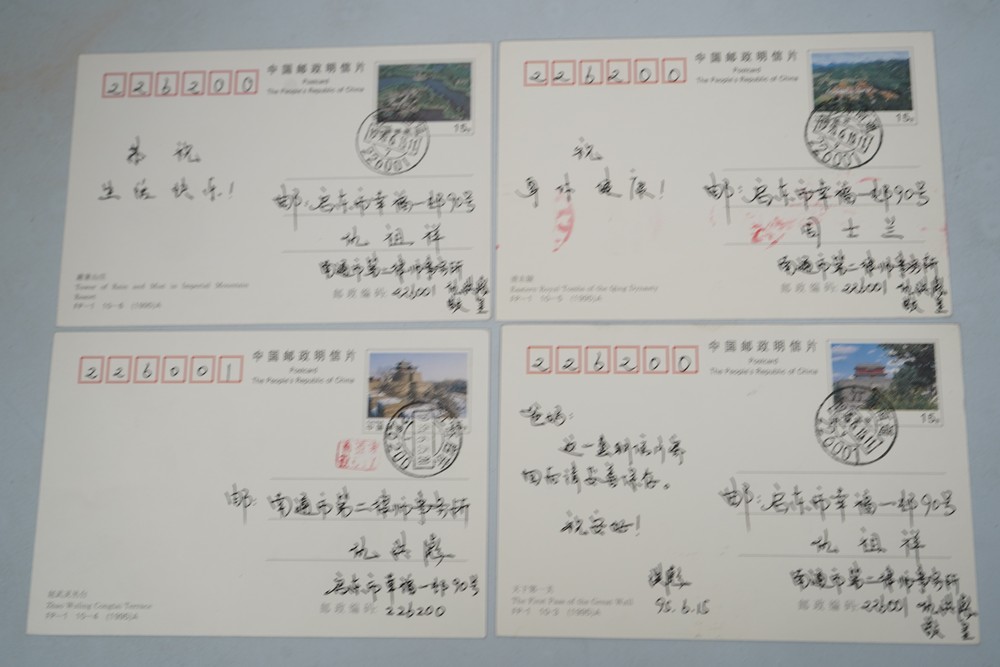 226200
中国邮政明信片
Postcard
The People's Republic of China
15分
226001
恭祝
生活快乐!
邮:启东市幸福一邨90号
祖祥
南通市第二律师事务所
邮政编码:226001
Tower of Rain and Mist in Imperial Mountain Resort
FP-1 10-6 (1995)A
226200
中国邮政明信片
Postcard
The People's Republic of China
15分
226001
祝
身体健康!
邮:启东市幸福一邨90号
周士兰
南通市第二律师事务所
邮政编码:226001
清东陵
Eastern Royal Tombs of the Qing Dynasty
FP-1 10-5 (1995)A
226001
中国邮政明信片
Postcard
The People's Republic of China
邮:南通市第二律师事务所
启东市幸福一邨90号
邮政编码:226200
赵武灵丛台
Zhao Wuling Congtai Terrace
FP-1 10-8 (1995)A
226200
中国邮政明信片
Postcard
The People's Republic of China
15分
226001
爸妈:
这一套明信片寄
回后请妥善保存。
祝安好!
95.6.15
邮:启东市幸福一邨90号
祖祥
南通市第二律师事务所
邮政编码:226001
天下第一关
The First Pass of the Great Wall
FP-1 10-3 (1995)A